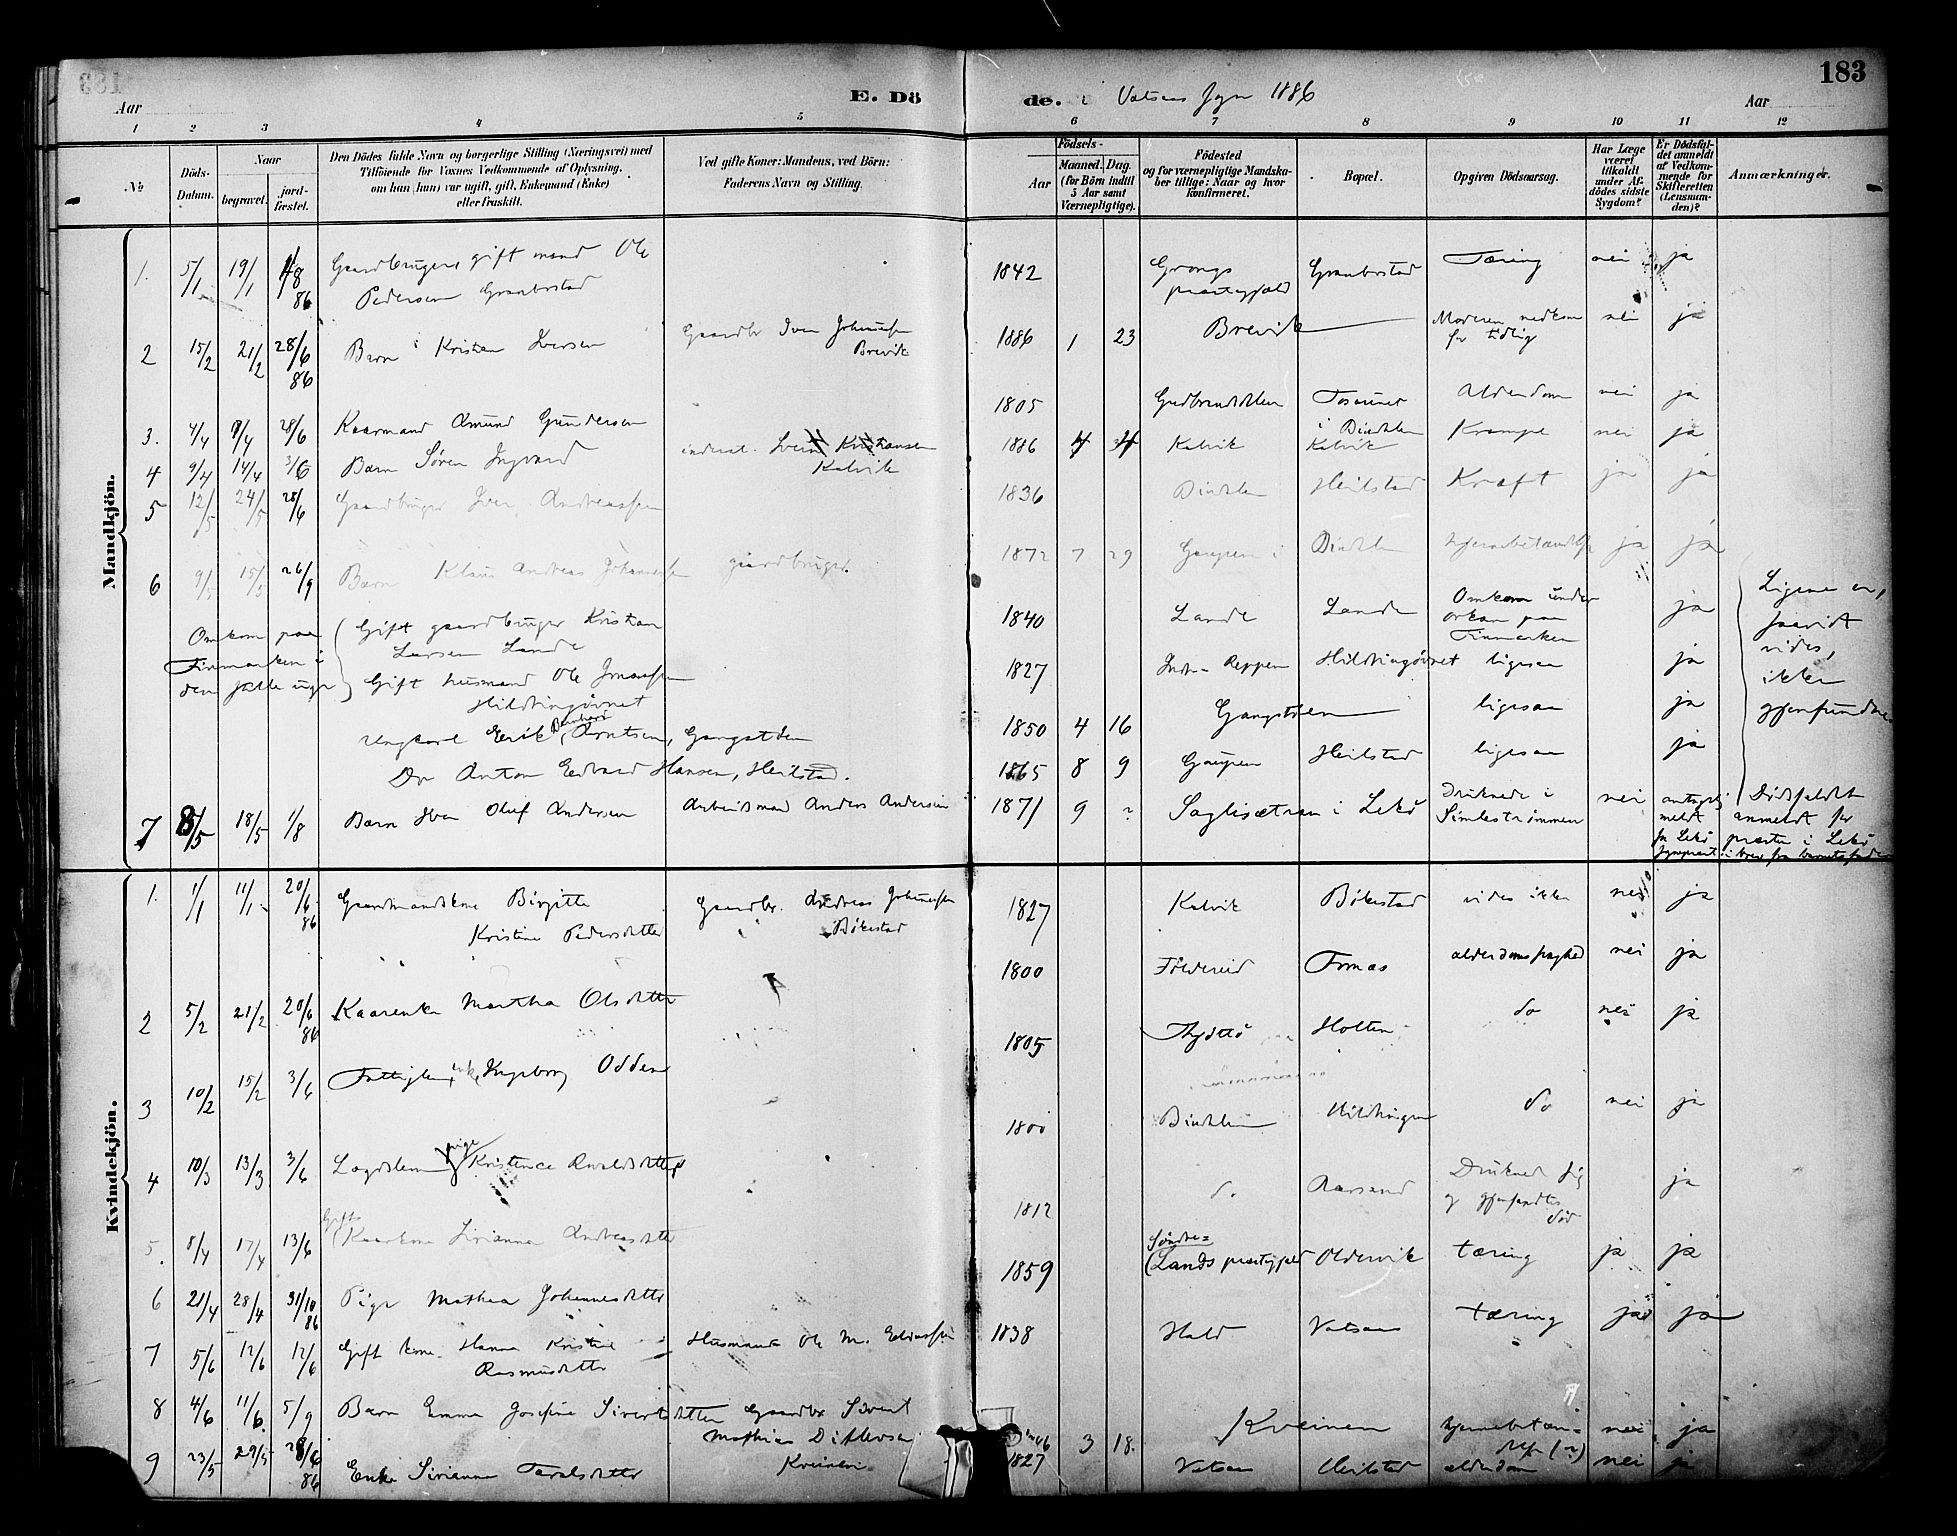 183
Aar
E. Dö
de. i Vatsaas Sogn 1886
Aar
1 2 3 4 5 6 7 8 9 10 11 12
No
Döds-Datum.
Naar
begravet.
jord-fæstet.
Den Dödes fulde Navn og borgerlige Stilling (Næringsvei) med
Tilföiende for Voxnes Vedkommende af Oplysning,
om han (hun) var ugift, gift, Enkemand (Enke)
eller fraskilt.
Ved gifte Koner: Mandens, ved Börn:
Faderens Navn og Stilling.
Födsels-
Aar
Maaned. Dag.
(for Börn indtil
5 Aar samt
Værnepligtige).
Födested
og for værnepligtige Mandska-
ber tillige: Naar og hvor
konfirmeret.
Bopæl.
Opgiven Dödsaarsag.
Har Læge
været
tilkaldt
under Af-
dödes sidste
Sygdom?
Er Dödsfal-
det anmeldt
af Vedkom-
mende for
Skifteretten
(Lensman-
den)?
Anmærkninger.
Mandkjön.
1. 5/1 19/1 1/8 86 Gaardbruger, gift mand Ole 1842 Grongs Granbostad Tæring nei ja
Pedersen Granbostad præstegjæld
2 15/2 21/2 28/6 86 Barn Kristian Iversen Gaardbr Iver Johannessen Brevik 1886 1 23 Brevik Moderen nedkom for tidlig nei ja
3. 4/4 28/6 Kaarmand Amund Gundersen 1805 Gudbrandsdalen i Bindalen Alderdom nei ja
4 9/4 14/4 3/6 Barn Søren Ingvard inderst. Kristiansen Kalvik 1886 4 Kalvik Kalvik Krampe nei ja
5 12/5 24/5 28/6 Gaardbruger Iver Andreassen 1836 Bindalen Heilstad Kræft ja ja
6 9/5 15/5 26/9 Barn Klaus Andreas Johannessen gaardbruger. 1872 7 29 Gaupen i Bindalen hjernebetændelse ja ja
Omkom paa
Finmarken i
den
Gift gaardbruger Kristian
Larsen Lande 1840 Lande Lande Omkom under orkan paa Finmarken ja
Gift husmand Ole
Hildringøvret 1827 Indre Reppen Hildringøvret ligesaa ja
Ungkarl Erik Bernhard Arntsen, Gangstøen 1850 4 16 Gangstøen ligesaa ja
Do Anton Edvard Hansen, Heilstad. 1865 8 9 Gaupen Heilstad ligesaa ja
Ligene er,
saavidt
vides,
ikke
gjenfundne
7 8/5 18/5 1/8 Barn Oluf Andersen Arbeidsmand Anders Andersen 1871 9 ? i Lekø Druknede i Simlestrømmen nei
Dødsfaldet
anmeldt for
præsten i Lekø
i brev fra barnets fader
Kvindekjön.
1. 1/1 11/1 20/6 86 Gaardmandskone Birgitte Gaardbr. Andreas Johannessen 1827 Kalvik Bøkestad vides ikke nei ja
Kristine Pedersdatter Bøkestad
2 5/2 21/2 20/6 86 Kaarenke Martha Olsdatter 1800 Foldereid Ternes alderdomssvaghed nei ja
3 10/2 15/2 3/6 Fattiglem, enke, Ingeborg Odden 1805 Holten do nei ja
4 10/3 13/3 3/6 Lægdslem pige Kristence 1800 Bindalen Hildringen do nei ja
5. 8/4 17/4 13/6 Gift
Kaarkone Sirianna Andreasdatter 1812 do Aarsand Druknede sig og gjenfandtes død ja
6 21/4 28/4 31/10 86 Pige Mathea Johannesdatter 1859 Søndre=
Lands præstegjæld Oldervik tæring ja ja
7 5/6 12/6 12/6 Gift kone Hanna Kristine Husmand Ole M. 1838 Hald Vatsaas tæring ja ja
Rasmusdatter
8 4/6 11/6 5/9 Barn Emma Josefine Sivertsdatter Gaardbr Sivert
Mathias Ditlevsen
Kveinen 3 18 Kveinen hjernebetændelse (?) nei ja
9 23/5 29/5 28/6 86 Enke Sirianna 1827 Vatsaas Heilstad alderdom nei ja